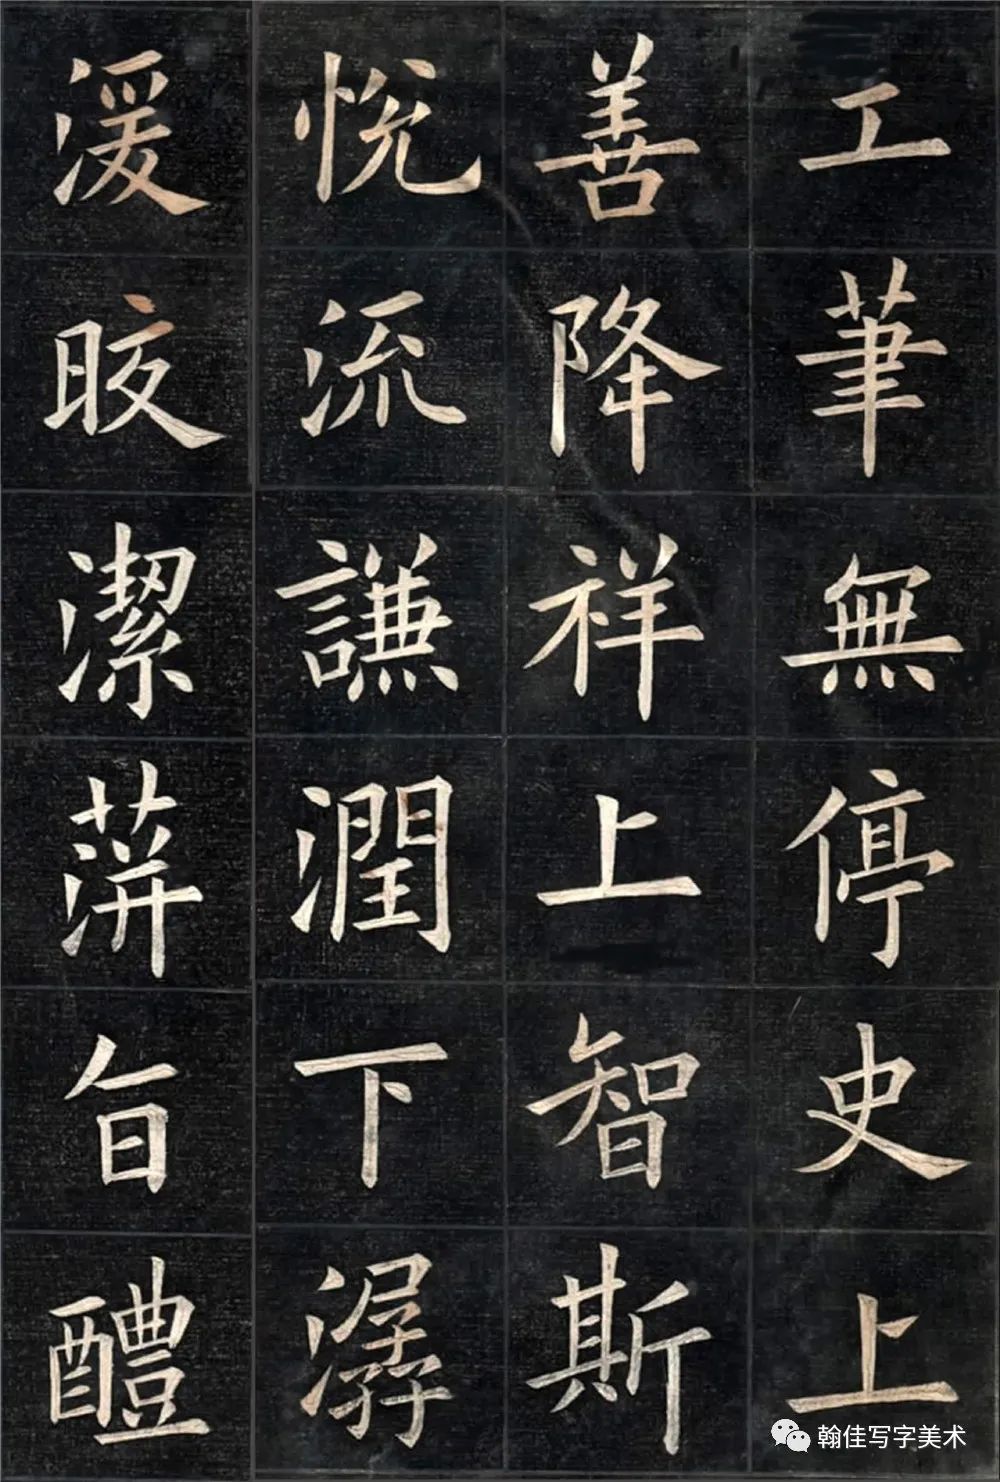 工筆無停史上
善降祥上智斯
悅流謙潤下潺
湲晈潔蓱旨醴
翰佳写字美术